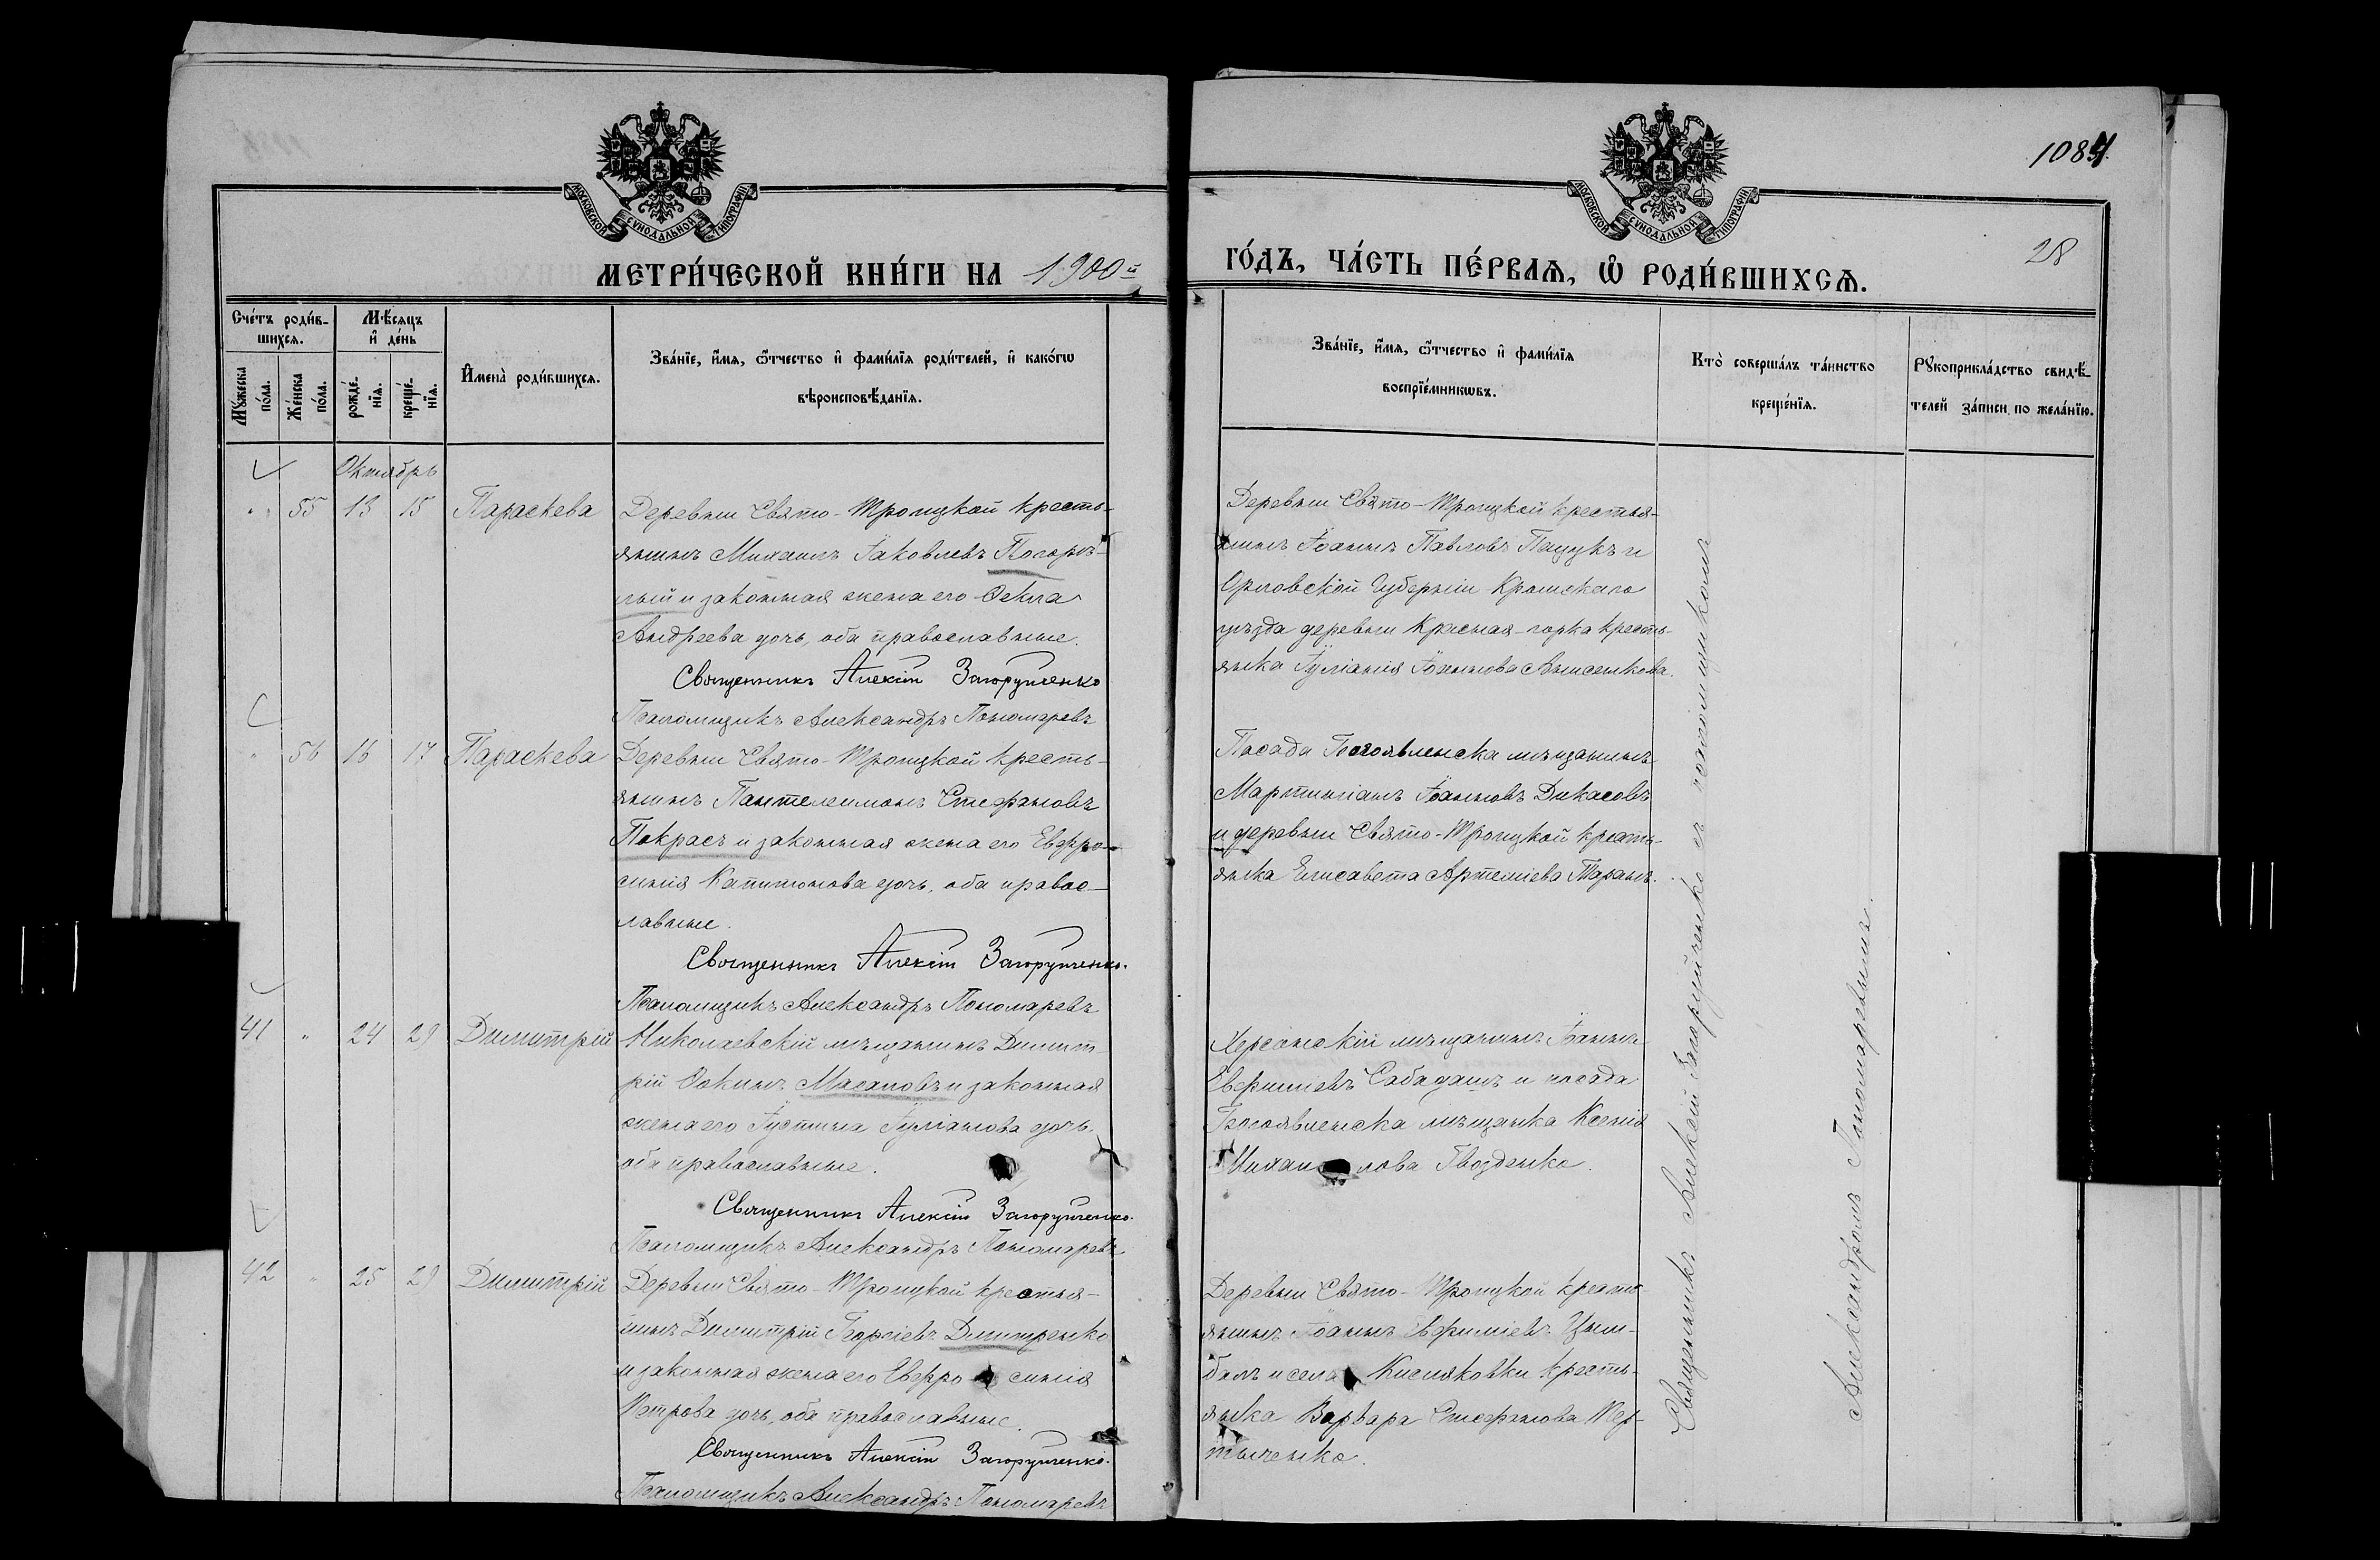 1084
28
МОСКОВСКОЙ СѴНОДАЛЬНОЙ ТИПОГРАФІИ
МОСКОВСКОЙ СѴНОДАЛЬНОЙ ТИПОГРАФІИ
МЕТРИ́ЧЕСКОЙ КНИ́ГИ НА 1900й
ГО́ДЪ, ЧА́СТЬ ПЕ́РВАѦ, Ѡ РОДИ́ВШИХСѦ.
Сче́тъ роди́в-
шихсѧ.
Мѣ́сѧцъ
и҆ де́нь
Мꙋ́жеска
по́ла.
Же́нска
по́ла.
рожде́-
нїѧ.
креще́-
нїѧ.
И҆мена̀ роди́вшихсѧ.
Зва́нїе, и҆́мѧ, ѻ҆́тчество и҆ фами́лїѧ роди́телей, и҆ како́гѡ
вѣроисповѣ́данїѧ.
Зва́нїе, и҆́мѧ, ѻ҆́тчество и҆ фами́лїѧ
воспрїе́мникѡвъ.
Кто̀ соверша́лъ та́инство
креще́нїѧ.
Рꙋкоприкла́дство свидѣ́-
телей за́писи по жела́нїю.
Октябрь
55 13 15 Параскева
Деревни Свято-Троицкой кресть-
янинъ Михаилъ Іаковлевъ Погорѣ-
лый и законная жена его Ѳекла
Андреева дочь, оба православные.
Священникъ Алексій Загоруйченко
Псаломщикъ Александръ Пономаревъ
Деревни Свято-Троицкой крестья-
нинъ Іоаннъ Павловъ Пацукъ и
Орловской Губерніи Кромскаго
уѣзда деревни Красная-горка кресть-
янка Іуліанія Іоаннова Анисенкова.
56 16 17 Параскева
Деревни Свято-Троицкой кресть-
янинъ Пантелеимонъ Стефановъ
Покрасъ и законная жена его Евфро-
синія Капитонова дочь, оба право-
славные.
Священникъ Алексій Загоруйченко.
Псаломщикъ Александръ Пономаревъ
Посада Богоявленска мѣщанинъ
Мартиніанъ Іоанновъ Дикасовъ
и деревни Свято-Троицкой кресть-
янка Елисавета Артеміева Таранъ.
41 " 24 29 Димитрій
Николаевскій мѣщанинъ Димит-
рій Ѳокинъ Масановъ и законная
жена его Іустина Іуліанова дочь,
оба православные.
Священникъ Алексій Загоруйченко.
Псаломщикъ Александръ Пономаревъ.
Херсонскій мѣщанинъ Іоаннъ
Евфиміевъ Сабадашъ и посада
Богоявленска мѣщанка Ксенія
Михаилова Гвозденко.
42 " 25 29 Димитрій
Деревни Свято-Троицкой крестья-
нинъ Димитрій Георгіевъ Дмитренко
и законная жена его Евфросинія
Петрова дочь, оба православные.
Священникъ Алексій Загоруйченко.
Псаломщикъ Александръ Пономаревъ
Деревни Свято-Троицкой кресть-
янинъ Іоаннъ Евфиміевъ Цым-
балъ и села Кисляковки кресть-
янка Варвара Стефанова
Священникъ Алексій Загоруйченко съ псаломщикомъ
Александромъ Пономаревымъ.